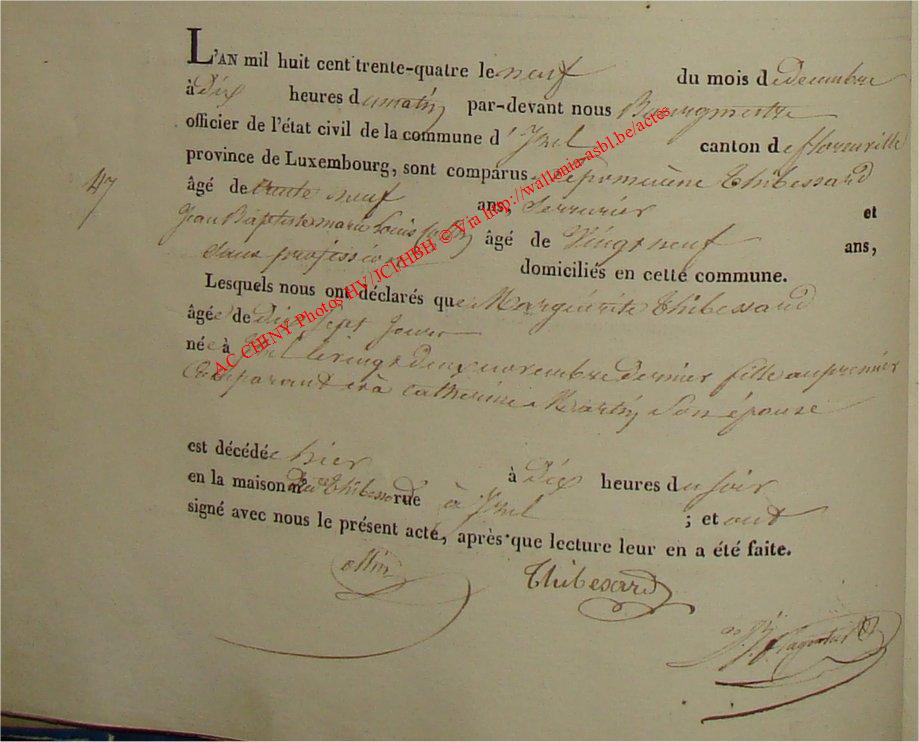 L'AN mil huit cent trente-quatre le neuf du mois de decembre
à dix heures du matin par-devant nous Bourgmestre
officier de l'état civil de la commune d'Izel canton de florenville
province de Luxembourg, sont comparus Nepomucène Thibessard
47
âgé de trente neuf ans, Serrurier et
Jean Baptiste marie Louis âgé de Vingt neuf ans,
sans profession domiciliés en cette commune.
Lesquels nous ont déclarés que Marguerite Thibessard
âgée de dix sept Jours
née à Izel le vingt deux novembre dernier fille au premier
Comparant et à Catherine Martin Son épouse
est décédée hier à dix heures du soir
en la maison dud Thibessard rue à Izel ; et ont
signé avec nous le présent acte, après que lecture leur en a été faite.
Thibesard
AC CHINY Photos HV/JCl/HBH © Via http://wallonia-asbl.be/actes